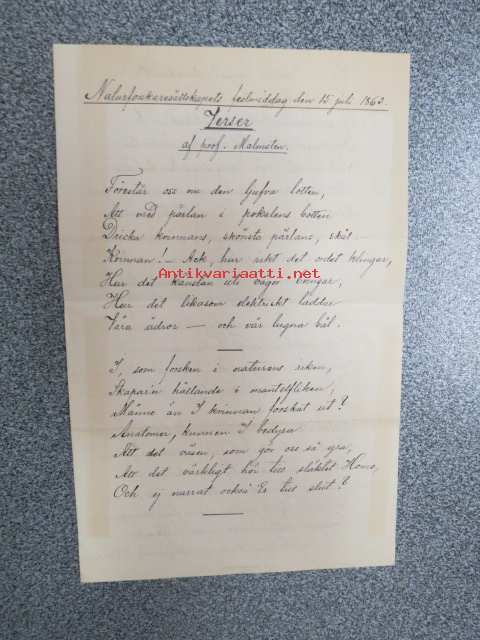 Naturforskaresällskapets festmiddag den 15 juli 1863.
Verser
af prof. Malmsten.
Förestår oss nu den ljufva lotten,
Att vid pärlan i pokalens botten
Dricka kvinnans, skönsta pärlans, skål —
Kvinnan! — Ack, hur rikt det ordet klingar,
Antikvariaatti.net
Hur det känslan uti vågor bringar,
Hur det likasom elektriskt laddar
Våra ådror — och vår lugna bål.
I, som forsken i naturens riken,
Skapar'n hållande i mantelfliken,
Månne än I kvinnan forskat ut?
Anatomer, kunnen I bedyra
Att det väsen, som gör oss så yra,
Att det värkligt hör till släktet Homo,
Och ej narrat också Er till slut?